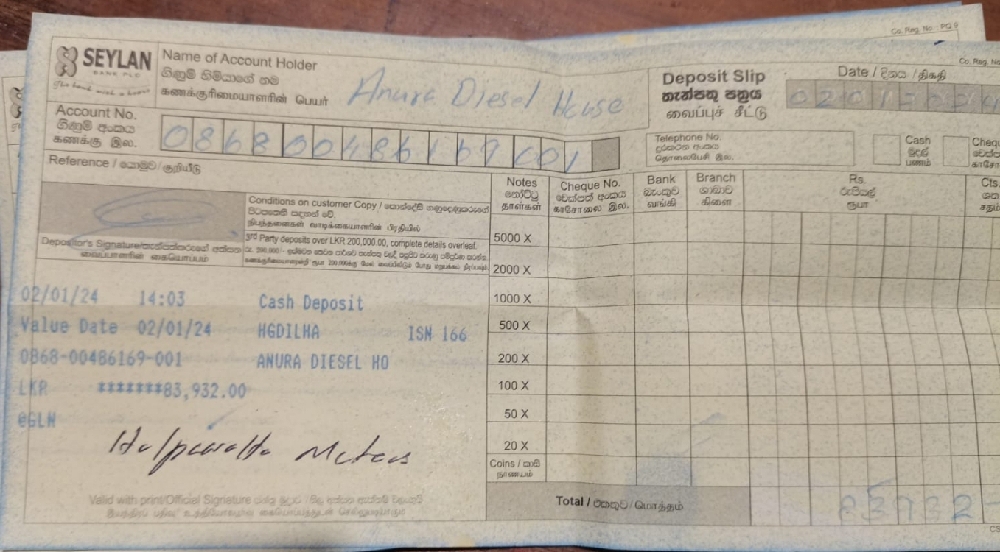 Co. Reg. No. PQ 9
Co. Reg. No
SEYLAN
BANK PLC
the bank with a heart
Name of Account Holder
ගිණුම් හිමියාගේ නම
கணக்குரிமையாளரின் பெயர்
Anura Diesel House
Deposit Slip
තැන්පතු පත්‍රය
வைப்புச் சீட்டு
Date / දිනය / திகதி
02012024
Account No.
ගිණුම් අංකය
கணக்கு இல.
086800486169001
Telephone No.
දුරකථන අංකය
தொலைபேசி இல.
Cash
මුදල්
பணம்
Reference / යොමුව / குறியீடு
Conditions on customer Copy /
3rd Party deposits over LKR 200,000.00, complete details overleaf.
Depositor's Signature/
வைப்பாளரின் கையொப்பம்
Notes
නෝට්ටු
தாள்கள்
Cheque No.
චෙක්පත් අංකය
காசோலை இல.
Bank
බැංකුව
வங்கி
Branch
ශාඛාව
கிளை
Rs.
රුපියල්
ரூபா
Cts.
5000 X
2000 X
1000 X
500 X
200 X
100 X
50 X
20 X
Coins / කාසි
நாணயம்
02/01/24 14:03 Cash Deposit
Value Date 02/01/24 HGDILHA ISN 166
0868-00486169-001 ANURA DIESEL HO
LKR *******83,932.00
@GLN
Motors
Valid with print/Official Signature
Total / එකතුව / மொத்தம்